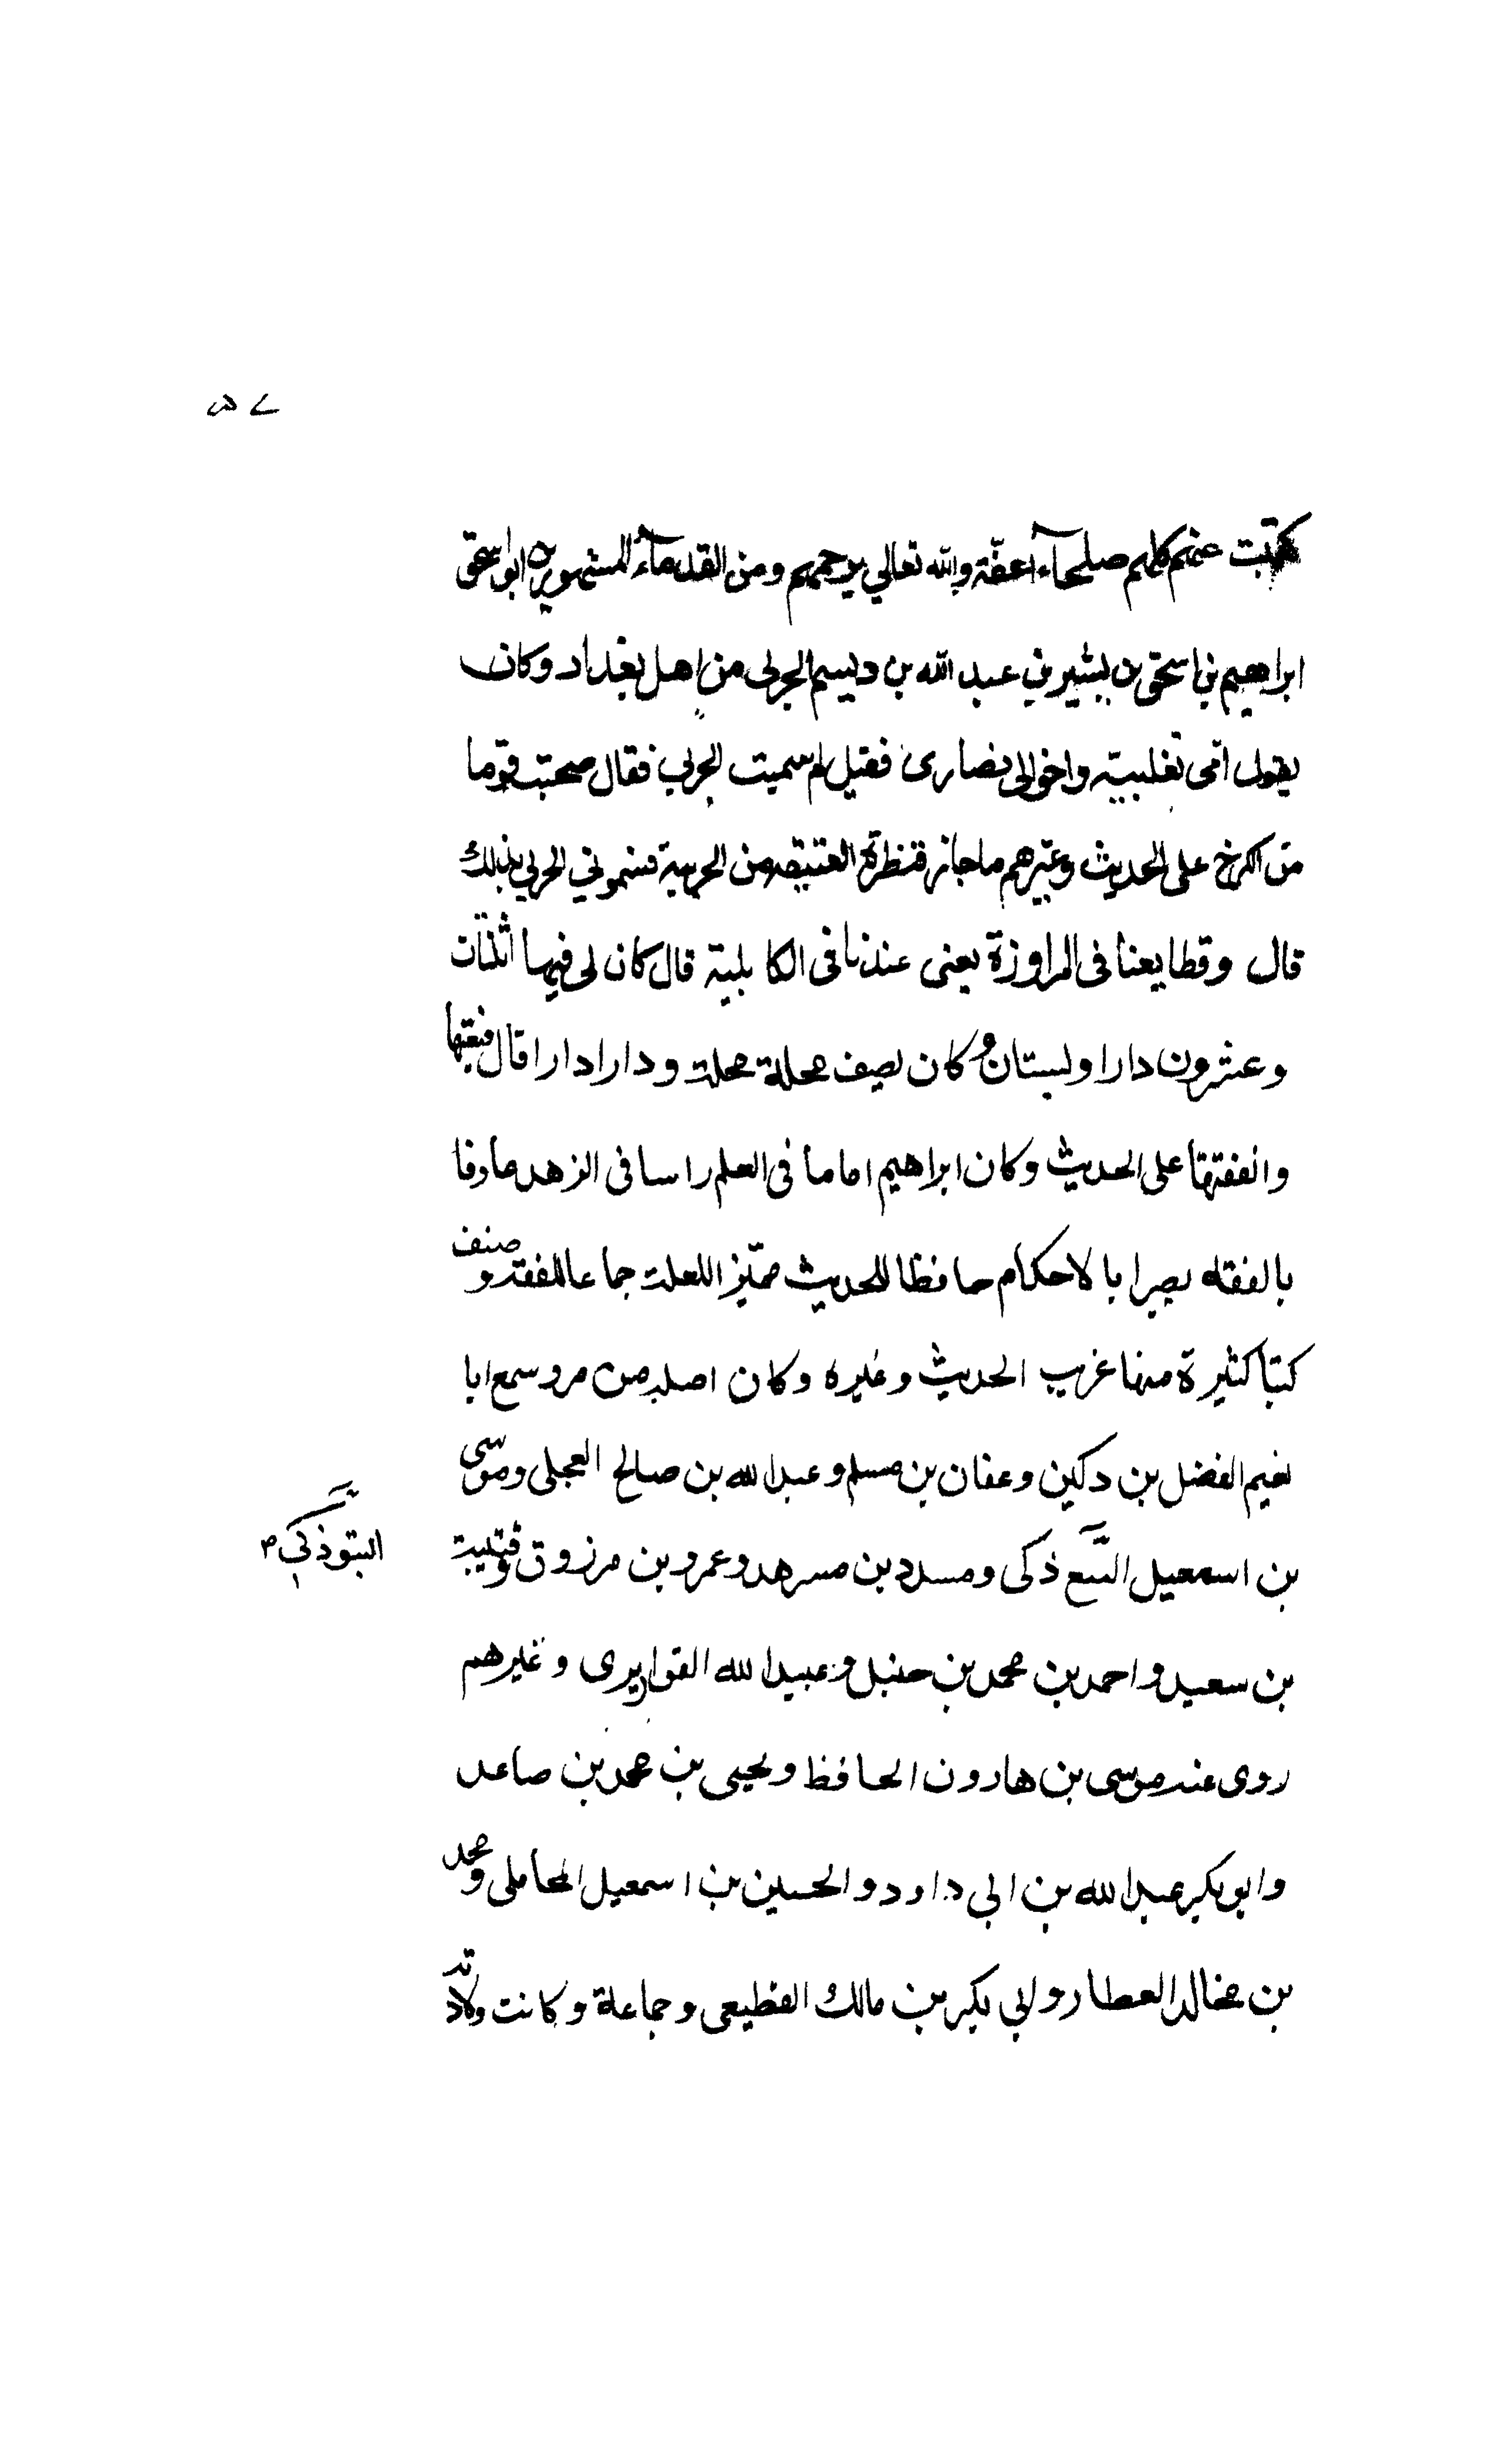 كتبت عنهم كلهم صلحاء اعفة والله تعالي يرحمهم ومن القدماء المشهورين ابو اسحق
ابراهيم بن اسحق بن بشير بن عبد الله بن ديسم الحربى من اهل بغداد وكان
يقول امى تغلبية واخوالى نصارى فقيل لم سميت الحربي فقال صحبت قوما
من الكرخ على الحديث وعندهم ما جاز قنطرة العتيقة من الحربية فسموني الحربي بذلك
قال وقطايعنا فى المراوزة يعنى عندنا فى الكابلية قال كان لى فيها اثنان
وعشرون دارا وبستان وكان يصف محلة محلة ودارا دارا قال فبعتها
وانفقتها على الحديث وكان ابراهيم اماما فى العلم راسا فى الزهد عارفا
بالفقه بصيرا بالاحكام حافظا للحديث مميزا للعلة جماعا للفقه وصنف
كتبا كثيرة منها غريب الحديث وغيره وكان اصله من مرو سمع ابا
نعيم الفضل بن دكين وعفان بن مسلم وعبد الله بن صالح العجلى وموسى
بن اسمعيل التبوذكى ومسدد بن مسرهد وعمرو بن مرزوق وقتيبة
التبوذكي
بن سعيد واحمد بن محمد بن حنبل وعبيد الله القواريرى وغيرهم
روى عنه موسى بن هارون الحافظ ويحيى بن محمد بن صاعد
وابو بكر عبد الله بن ابى داود والحسين بن اسمعيل المحاملى ومحمد
بن مخالد العطار وابي بكر بن مالك القطيعى وجماعة وكانت ولادته